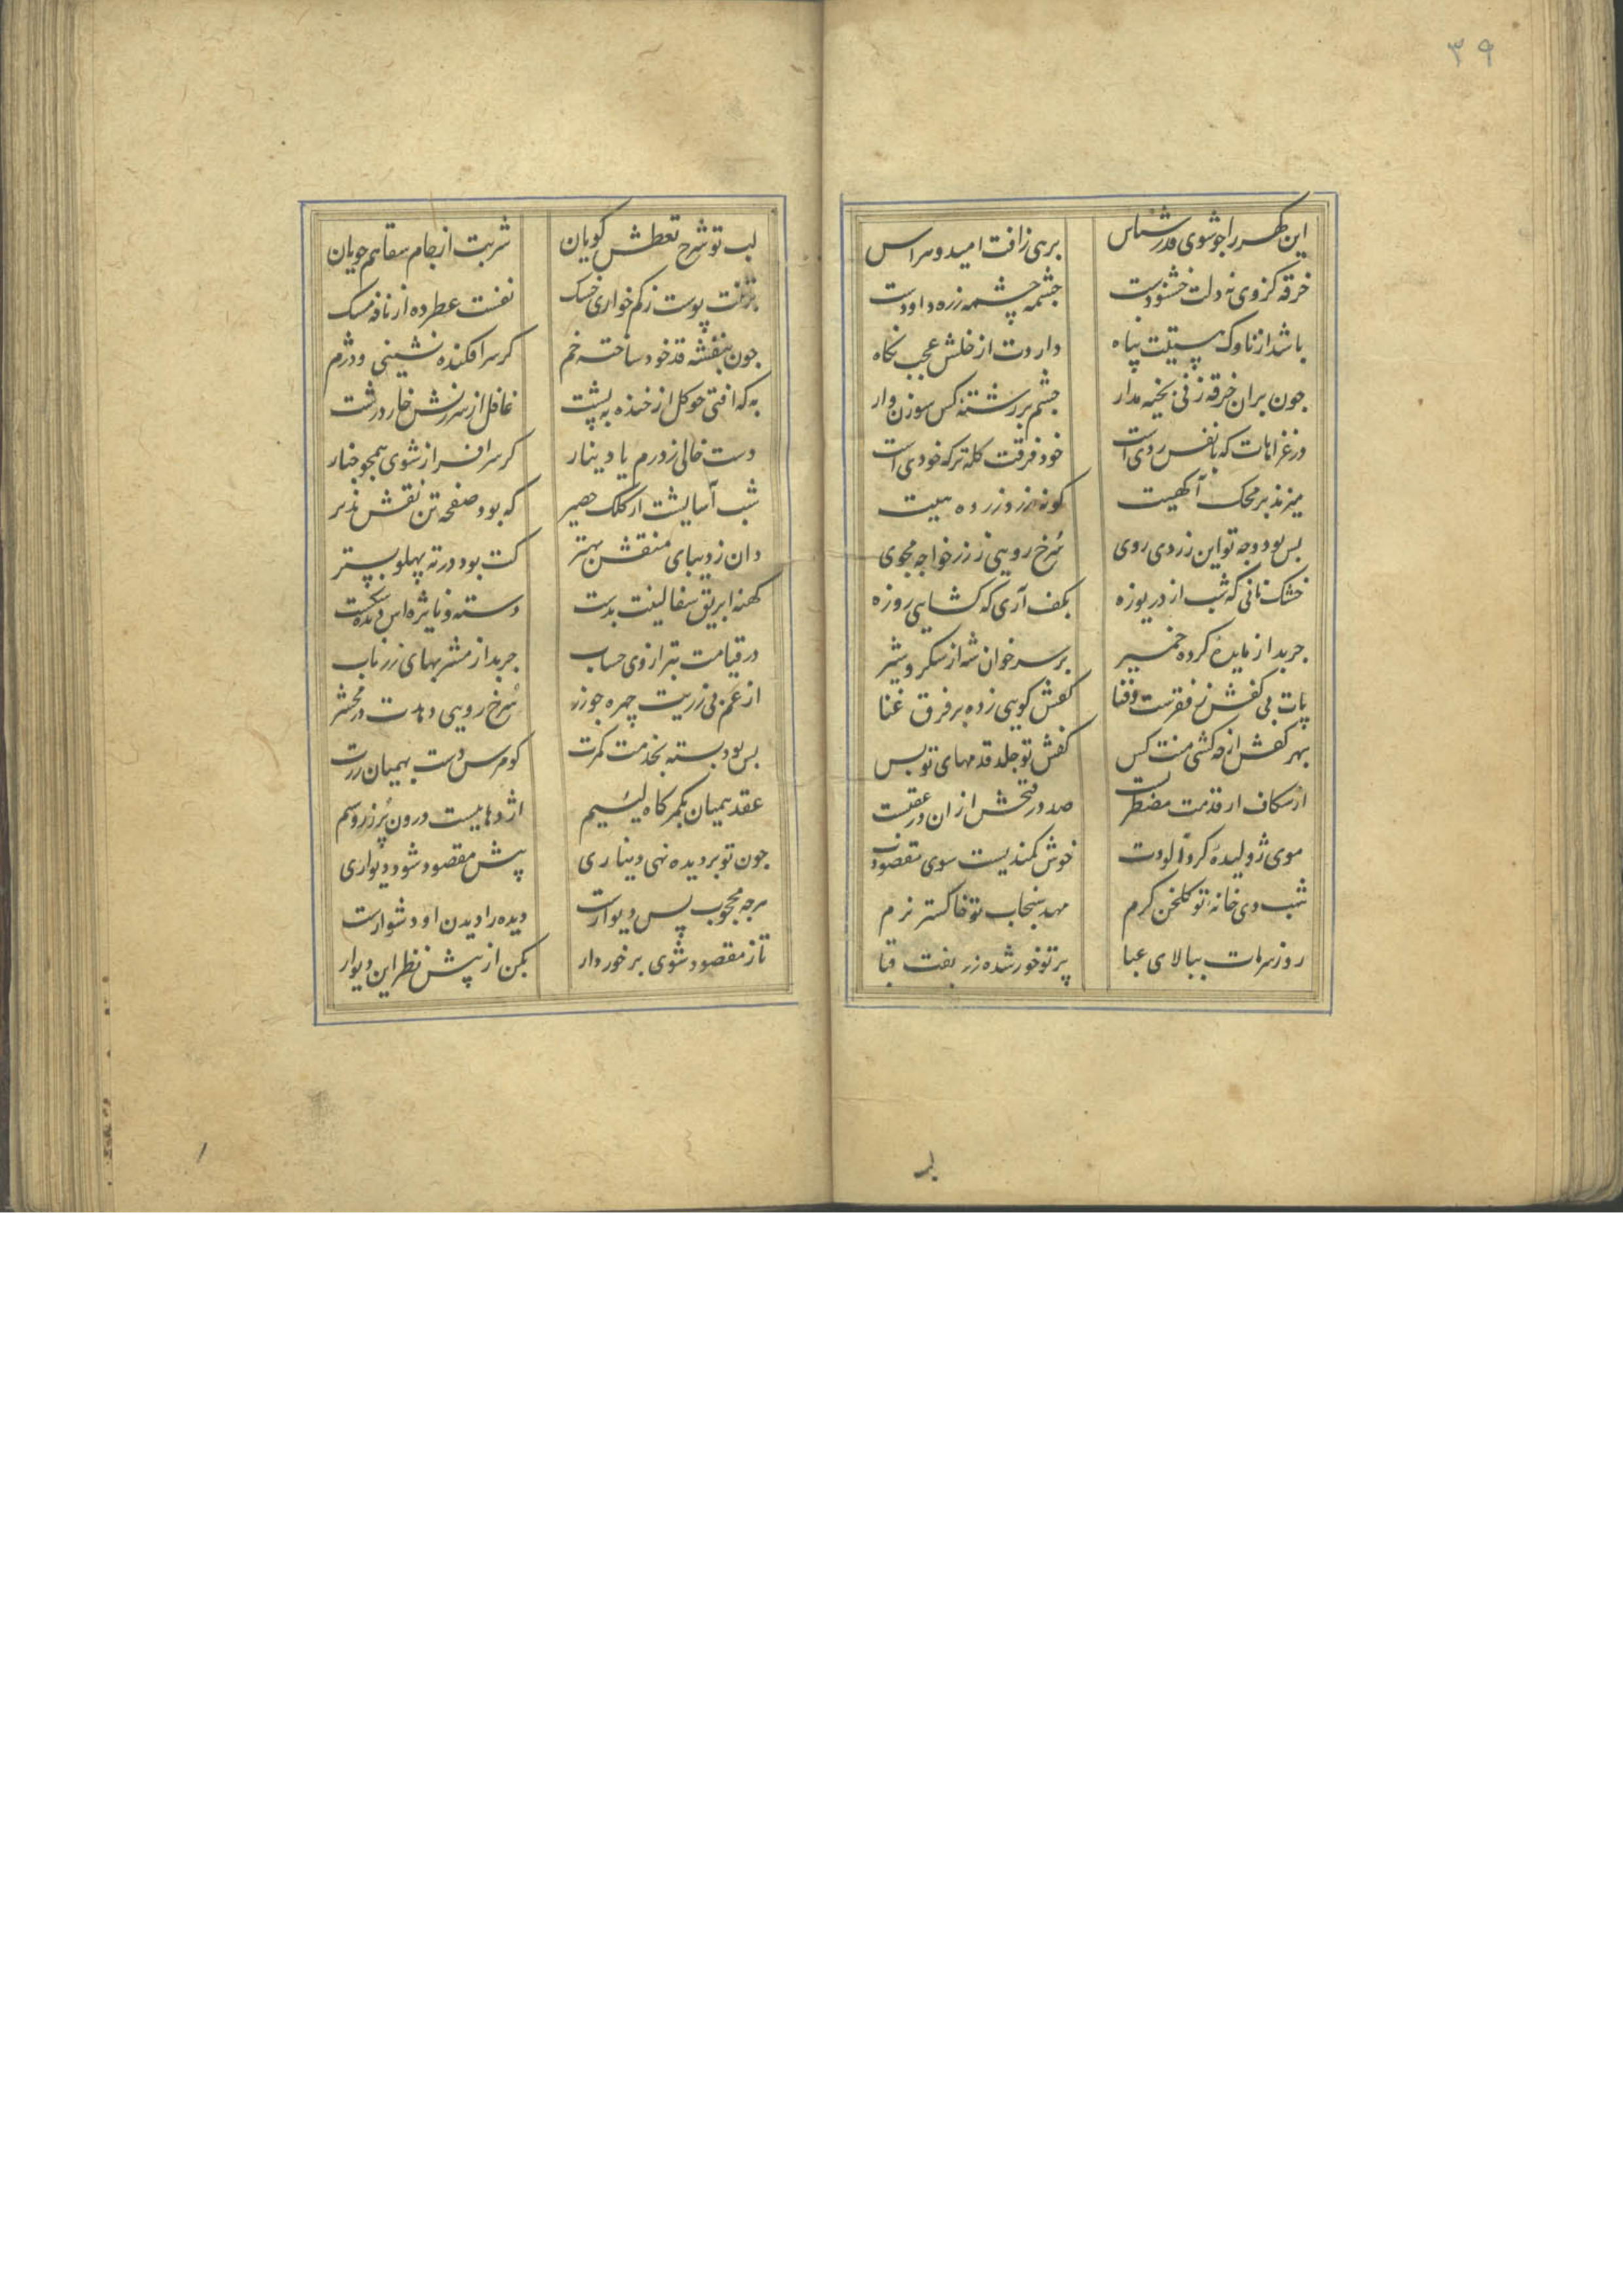 ۳۹
این گهر را چو شوی قدر شناس برهی ز آفت امید و هراس
خرقه کز وی نه دلت خشنودست چشمه چشمه زره داودست
باشد از ناوک هستیت پناه داردت از خلش عجب نگاه
چون بران خرقه زنی بخیه مدار چشم بر رشته کس سوزن وار
در غزاهات که با نفس ردی است خود فرقت کله ترک خودی است
میزند بر محک آگهیت گونه زرد زر ده
بس بود وجه تو این زردی روی سرخ رویی ز زر خواجه مجوی
خشک نانی که شب از دریوزه بکف آری که گشایی روزه
چربد از مایده کرده خمیر بر سر خوان شه از شکر و شیر
پات بی کفش ز فقرست و فنا کفش کوبی زده بر فرق غنا
بهر کفش از چه کشی منت کس کفش تو جلد قدمهای تو بس
از شکاف ار قدمت مضطربست صد در فتحش ازان در عقبست
موی ژولیده گردآلودت خوش کمندیست سوی مقصودت
شب دی خانه تو گلخن گرم مهد سنجاب تو خاکستر نرم
روز سرمات ببالای عبا پرتو خور شده زر بفت قبا
لب تو شرح تعطش گویان شربت از جام سقاهم جویان
بر تنت پوست ز کم خواری خشک نفست عطر ده از نافه مسک
چون بنفشه قد خود ساخته خم گر سرافکنده نشینی و دژم
به که افتی چو گل از خنده به پشت غافل از سرزنش خار درشت
دست خالی ز درم یا دینار گر سرافراز شوی همچو چنار
شب آسایشت از کلک حصیر که بود صفحه تن نقش پذیر
دان ز دیبای منقش بهتر کت بود در ته پهلو بستر
کهنه ابریق سفالینت بدست دسته و نایژه اش دیده شکست
در قیامت بترازوی حساب چربد از مشربهای زر ناب
از غم بی زریت چهره چو زر سرخ رویی دهدت در محشر
بس بود بسته بخدمت کمرت گو مرس دست بهمیان زرت
عقد همیان بکمرگاه لئیم اژدهاییست درون پر زر و سیم
چون تو بر دیده نهی دیناری پیش مقصود شود دیواری
هرچه محجوب پس دیوارست دیده را دیدن او دشوارست
تا ز مقصود شوی برخوردار بکن از پیش نظر این دیوار